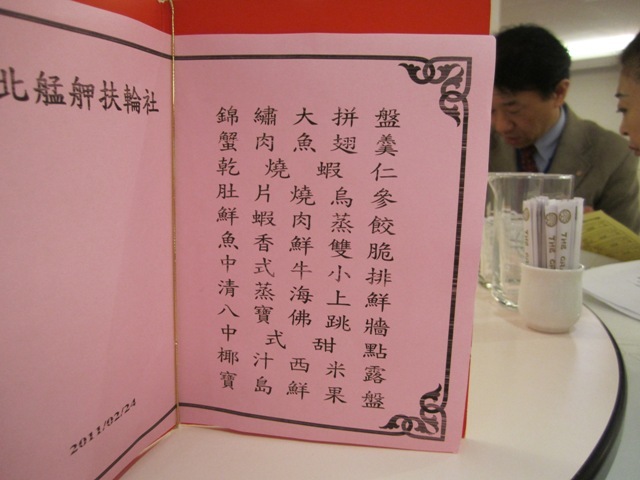 北艋舺扶輪社
2011/02/24
錦繡大拼盤
蟹肉魚翅羹
乾燒蝦仁
肚片燒烏參
鮮蝦肉蒸餃
魚香鮮雙脆
中式牛小排
清蒸海上鮮
八寶佛跳牆
中式甜點
椰汁西米露
寶島鮮果盤
THE
THE